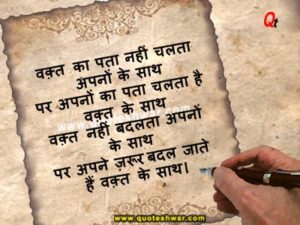 Qt
वक़्त का पता नहीं चलता
अपनों के साथ
पर अपनों का पता चलता है
वक़्त के साथ
वक़्त नहीं बदलता अपनों
के साथ
पर अपने ज़रूर बदल जाते
हैं वक़्त के साथ।
www.quoteshwar.com